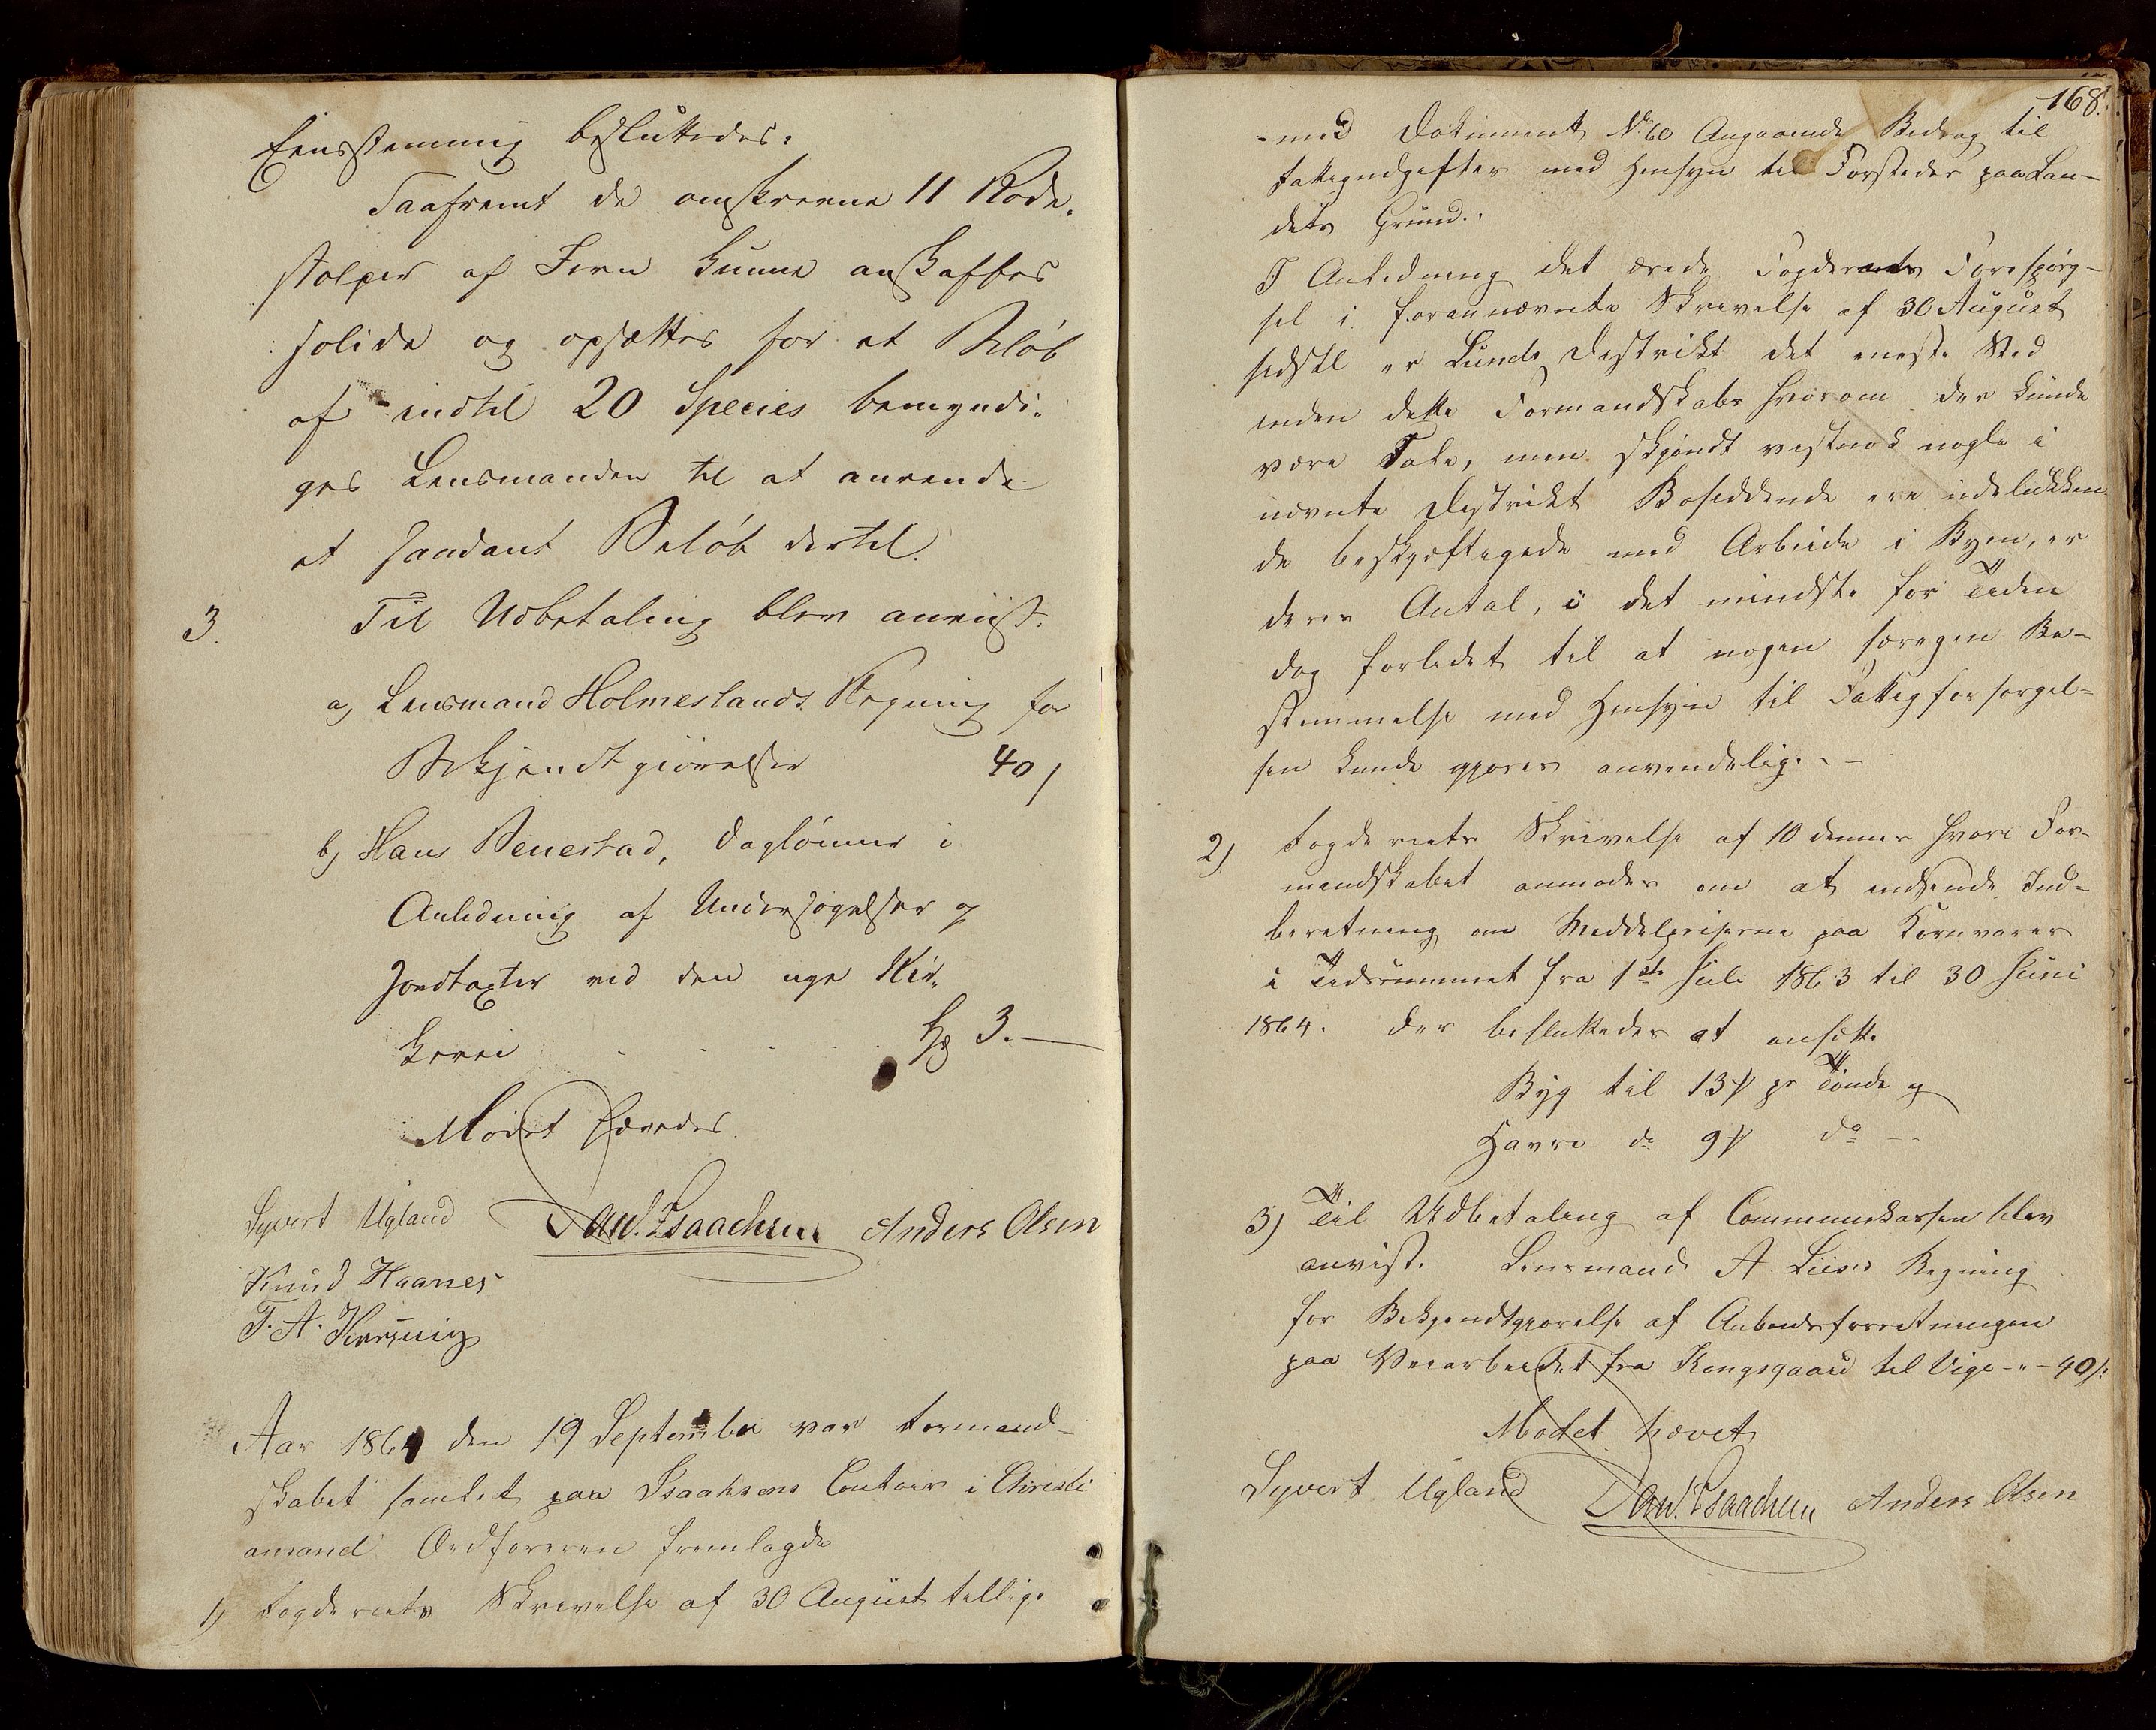 Eensstemmig besluttedes:
Saafremt de omskrevne 11 Rode-
stolper af Jern kunne anskaffes
solide og opsættes for et Beløb
af indtil 20 Species bemyndi-
ges Lensmanden til at anvende
et saadant Beløb dertil.
3. Til Udbetaling blev anviist:
a) Lensmand Holmeslands Regning for
Bekjendtgiørelser 40 /
b) Hans Benestad, Daglønner i
Anledning af Undersøgelser og
Jordtaxter ved den nye Kir-
kevei . . . . . 3. —
Mødet hævedes.
Syvert Ugland Dan. Isaachsen Anders Olsen
Knud Haanes
T. A.
Aar 1864 den 19 September var Formand-
skabet samlet paa Isaaksens Contoir i Christi
ansand Ordføreren fremlagde
1) Fogderiets Skrivelse af 30 August tillige
168.
-med Dokument No 60 Angaaende Bidrag til
Fattigudgifter med Hensyn til Forsteder paa Lan-
dets Grund.
I Anledning det ærede Fogderiets Forespørg-
sel i forannævnte Skrivelse af 30 August
sidstl er Lunds Distrikt det eneste Sted
inden dette Formandskabs hvorom der kunde
være Tale, men skjøndt vistnok nogle i
nævnte Distrikt Bosiddende ere udelukken-
de beskjæftigede med Arbeide i Byen, er
deres Antal, i det mindste for Tiden
dog forlidet til at nogen særegen Be-
stemmelse med Hensyn til Fattigforsørgel-
sen kunde gjøres anvendelig. -
2) Fogderiets Skrivelse af 10 dennes hvori For-
mandskabet anmodes om at indsende Ind-
beretning om Middelpriserne paa Kornvarer
i Tidsrummet fra 1ste Juli 1863 til 30 Juni
1864. Der besluttedes at ansætte
Byg til 13 pr Tønde og
Havre do 9 do --
3) Til Udbetaling af Communekassen blev
anvist. Lensmand A. Regning
for Bekjendtgjørelse af Anbudsforretningen
paa Veiarbeidet fra Kongsgaard til Vige - " - 40 /:
Mødet hævet
Syvert Ugland Dan. Isaachsen Anders Olsen